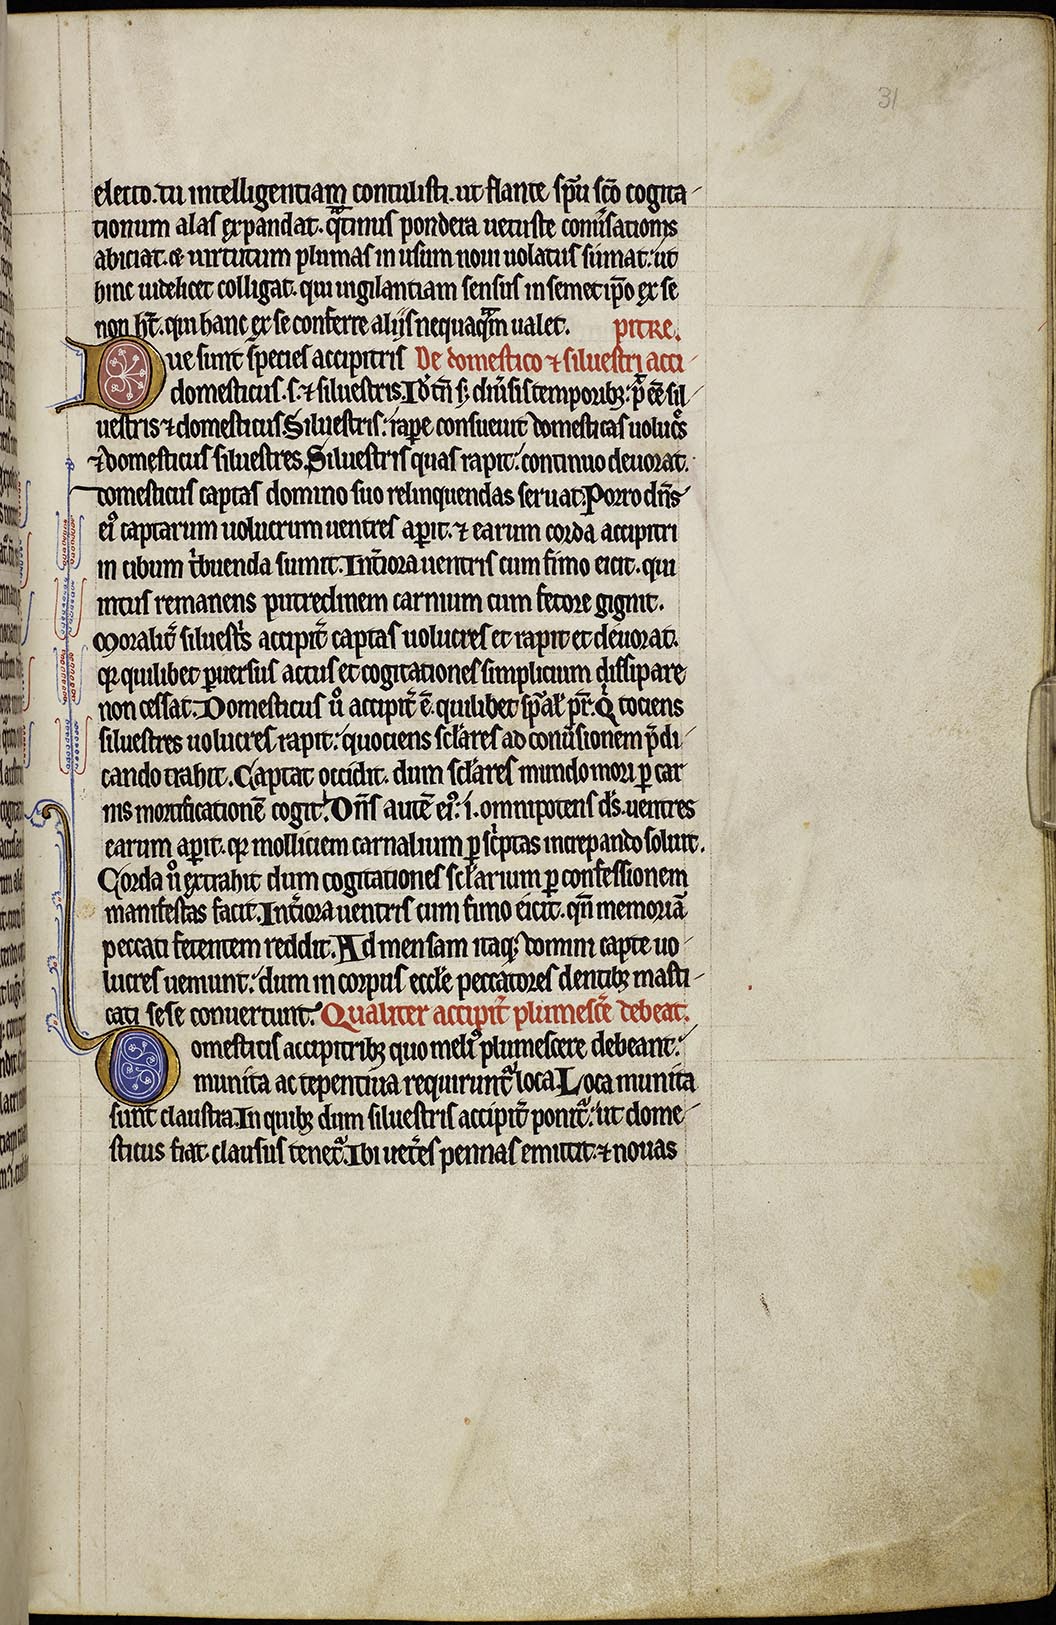 31
electo. tu intelligentiam contulisti. ut flante spu sco cogita-
tionum alas expandat. qatinus pondera uetuste conusationis
abiciat. & uirtutum plumas in usum noui uolatus sumat: ut
hinc uidelicet colligat. qui uigilantiam sensus in semetipo ex se
non ht. qui hanc ex se conferre alijs nequaqam ualet. pitre.
Due sunt species accipitris De domestico ⁊ siluestri acci-
domesticus .s. ⁊ siluestris. Id tn s; diusis temporib; pa ee sil-
uestris ⁊ domesticus. Siluestris: rape consueuit domesticas uolucos
⁊ domesticus siluestres. Siluestris quas rapit: continuo deuorat.
domesticus captas domino suo relinquendas seruat. Porro dns
ei captarum uolucrum uentres apit. ⁊ earum corda accipitri
in cibum tibuenda sumit. Intiora uentris cum fimo eicit. qui
intus remanens putredinem carnium cum fetore gignit.
Moralit siluestis accipit captas uolucres et rapit et deuorat.
q quilibet puersus actus et cogitationes simplicium dissipare
non cessat. Domesticus uo accipit e. quilibet spual pr. Qi tociens
siluestres uolucres rapit: quociens sclares ad conusionem pdi-
cando trahit. Captas occidit. dum sclares mundo mori p car
nis mortificatione cogit. Dns aute ei: .i. omnipotens ds. uentres
earum apit. q molliciem carnalium p sciptas increpando soluit.
Corda uo extrahit dum cogitationes sclarium p confessionem
manifestas facit. Intiora uentris cum fimo eicit. qn memoria
peccati fetentem reddit. Ad mensam itaq; domini capte uo-
lucres ueniunt: dum in corpus eccle peccatores dentib; masti-
cati sese conuertunt: Qualiter accipit plumesce debeat.
Domesticis accipitrib; quo meli plumescere debeant:
munita ac tepentiua requirunt loca. Loca munita
sunt claustra. In quib; dum siluestris accipit ponit: ut dome-
sticus fiat clausus tenet. Ibi uetes pennas emittit. ⁊ nouas